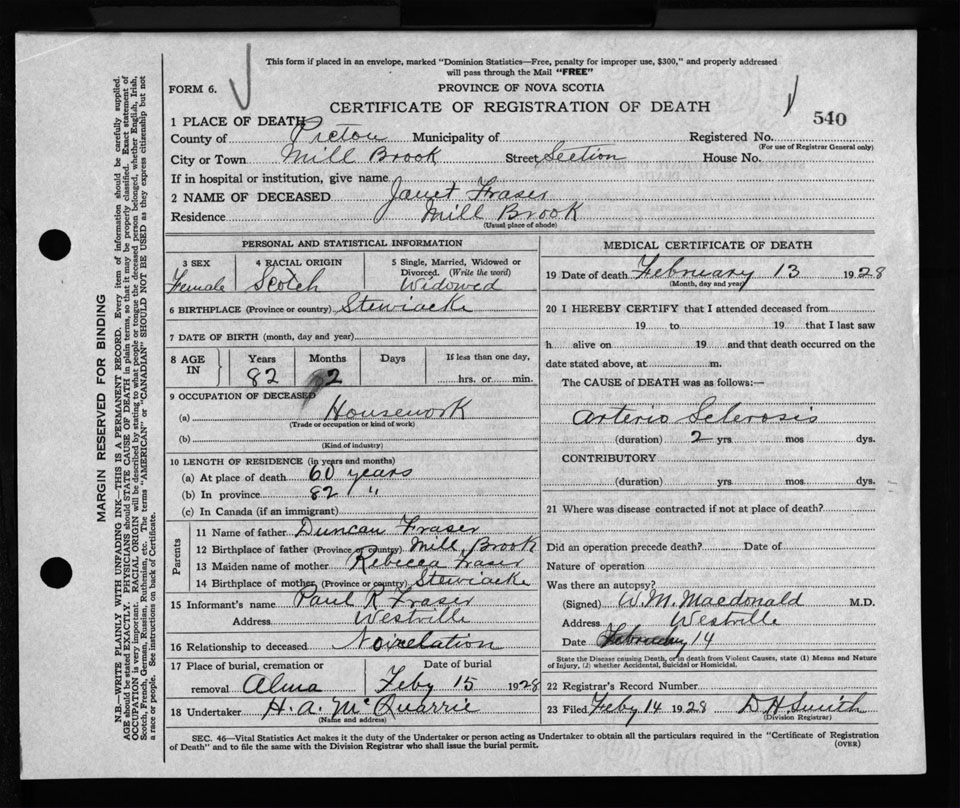 This form if placed in an envelope, marked "Dominion Statistics—Free, penalty for improper use, $300," and properly addressed
will pass through the Mail "FREE"
FORM 6.
PROVINCE OF NOVA SCOTIA
CERTIFICATE OF REGISTRATION OF DEATH
540
1 PLACE OF DEATH
County of Pictou Municipality of Registered No.
(For use of Registrar General only)
City or Town Mill Brook Street Section House No.
If in hospital or institution, give name
2 NAME OF DECEASED Janet Fraser
Residence Mill Brook
(Usual place of abode)
PERSONAL AND STATISTICAL INFORMATION
3 SEX 4 RACIAL ORIGIN 5 Single, Married, Widowed or
Divorced. (Write the word)
Female Scotch Widowed
6 BIRTHPLACE (Province or country) Stewiacke
7 DATE OF BIRTH (month, day and year)
8 AGE IN Years Months Days If less than one day,
82 2 hrs. or min.
9 OCCUPATION OF DECEASED
(a) Housework
(Trade or occupation or kind of work)
(b)
(Kind of industry)
10 LENGTH OF RESIDENCE (in years and months)
(a) At place of death 60 years
(b) In province 82 "
(c) In Canada (if an immigrant)
Parents
11 Name of father Duncan Fraser
12 Birthplace of father (Province or country) Mill Brook
13 Maiden name of mother Rebecca Fraser
14 Birthplace of mother (Province or country) Stewiacke
15 Informant's name Paul R Fraser
Address Westville
16 Relationship to deceased No relation
17 Place of burial, cremation or Date of burial
removal Alma Feby 15 1928
18 Undertaker H. A. McQuarrie
(Name and address)
MEDICAL CERTIFICATE OF DEATH
19 Date of death February 13 1928
(Month, day and year)
20 I HEREBY CERTIFY that I attended deceased from
19 to 19 that I last saw
h alive on 19 and that death occurred on the
date stated above, at m.
The CAUSE of DEATH was as follows:—
Arterio Sclerosis
(duration) 2 yrs mos dys.
CONTRIBUTORY
(duration) yrs mos dys.
21 Where was disease contracted if not at place of death?
Did an operation precede death? Date of
Nature of operation
Was there an autopsy?
(Signed) W. M. Macdonald M.D.
Address Westville
Date February 14
State the Disease causing Death, or in death from Violent Causes, state (1) Means and Nature
of Injury, (2) whether Accidental, Suicidal or Homicidal.
22 Registrar's Record Number
23 Filed Feby 14 1928 D H Smith
(Division Registrar)
SEC. 46—Vital Statistics Act makes it the duty of the Undertaker or person acting as Undertaker to obtain all the particulars required in the "Certificate of Registration
of Death" and to file the same with the Division Registrar who shall issue the burial permit.
(OVER)
MARGIN RESERVED FOR BINDING
N.B.—WRITE PLAINLY WITH UNFADING INK—THIS IS A PERMANENT RECORD. Every item of information should be carefully supplied.
AGE should be stated EXACTLY. PHYSICIANS should STATE CAUSE OF DEATH in plain terms, so that it may be properly classified. Exact statement of
OCCUPATION is very important. RACIAL ORIGIN will be described by stating to what people or tongue the deceased person belonged, whether English, Irish,
Scotch, French, German, Russian, Ruthenian, etc. The terms "AMERICAN" or "CANADIAN" SHOULD NOT BE USED as they express citizenship but not
a race or people. See instructions on back of Certificate.